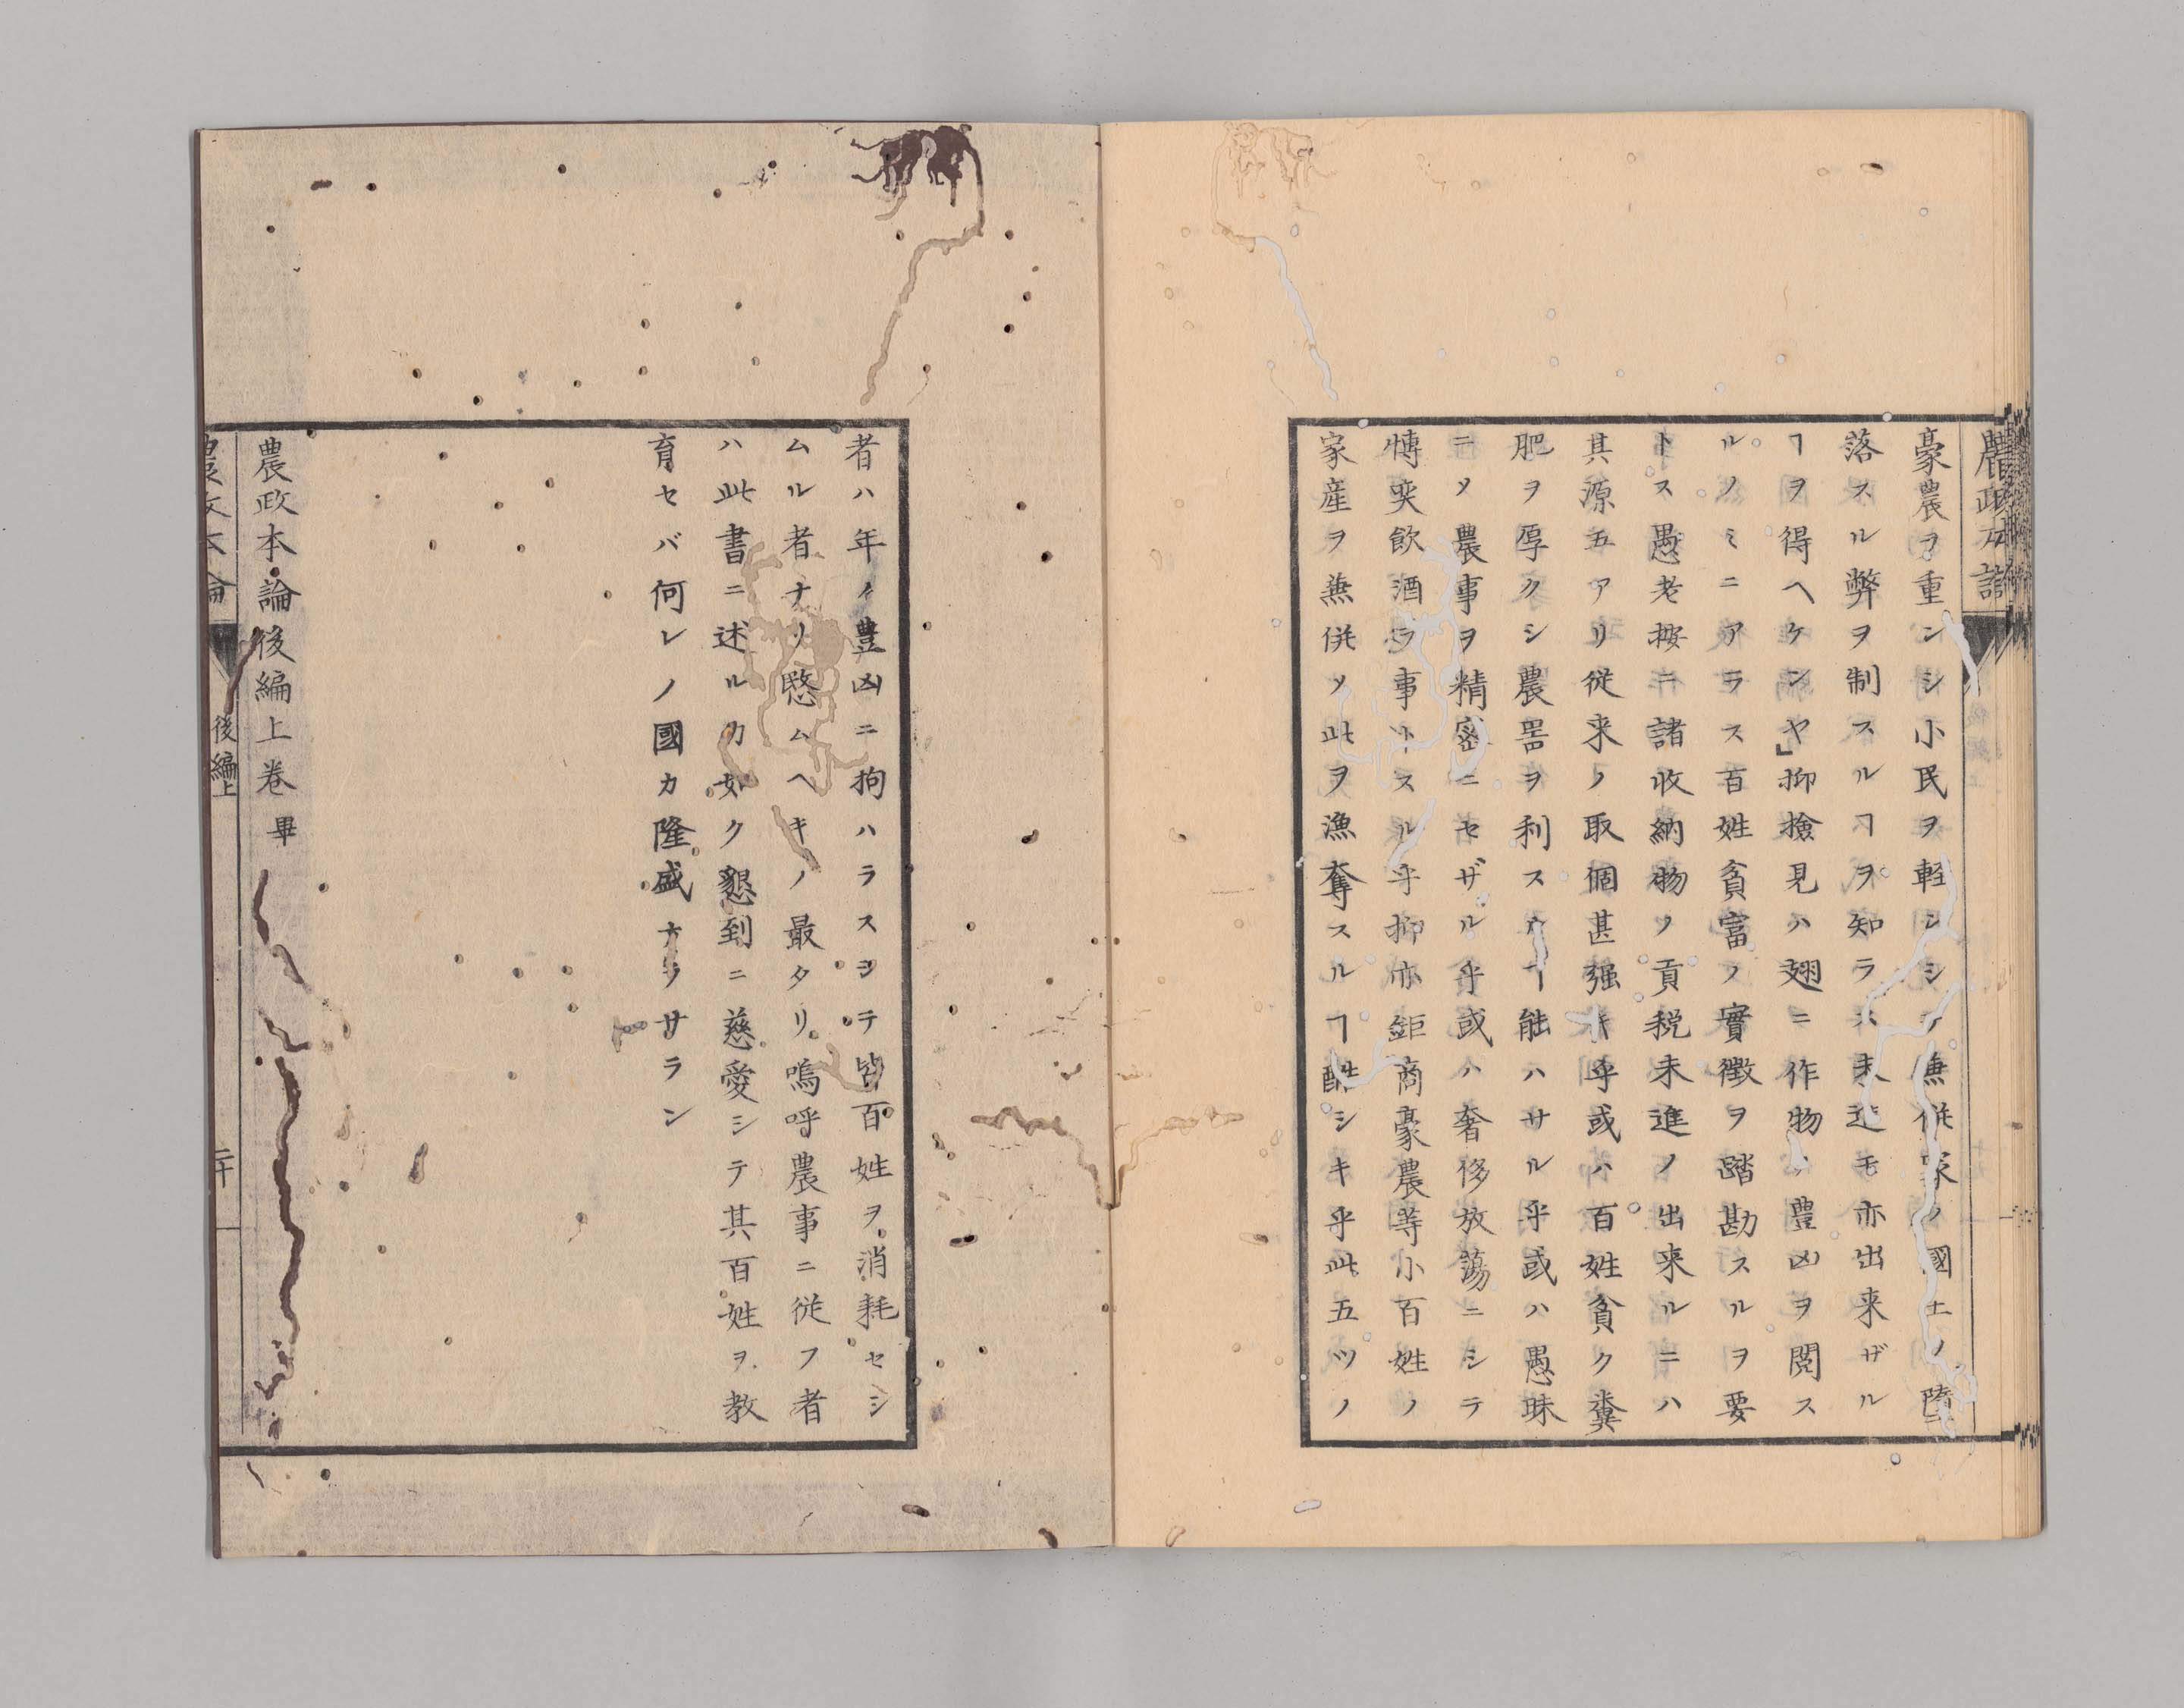 農政本論
豪農ヲ重ンシ小民ヲ軽シシテ兼併家ノ國土ノ墮
落スル弊ヲ制スルヿヲ知ラス未進モ亦出来ザル
ヿヲ得ヘケンヤ」抑撿見ハ翅ニ作物ノ豊凶ヲ閲ス
ルノミニアラス百姓貧富ノ實徴ヲ踏勘スルヲ要
トス愚老按ニ諸収納物ノ貢税未進ノ出来ルニハ
其源五アリ従来ノ取個甚强キ乎或ハ百姓貧ク糞
肥ヲ厚クシ農噐ヲ利スルヿ能ハサル乎或ハ愚昧
ニメ農事ヲ精密ニセザル乎或ハ奢侈放蕩ニシテ
博奕飲酒ヲ事トスル乎抑亦鉅商豪農等小百姓ノ
家産ヲ兼併メ此ヲ漁奪スルヿ酷シキ乎此五ツノ
者ハ年ノ豊凶ニ拘ハラスシテ皆百姓ヲ消耗セシ
ムル者ナリ愍ムヘキノ最タリ嗚呼農事ニ従フ者
ハ此書ニ述ルカ如ク懇到ニ慈愛シテ其百姓ヲ教
育セバ何レノ國カ隆盛ナラサラン
農政本論後編上巻 畢
農政本論 後編上 二十